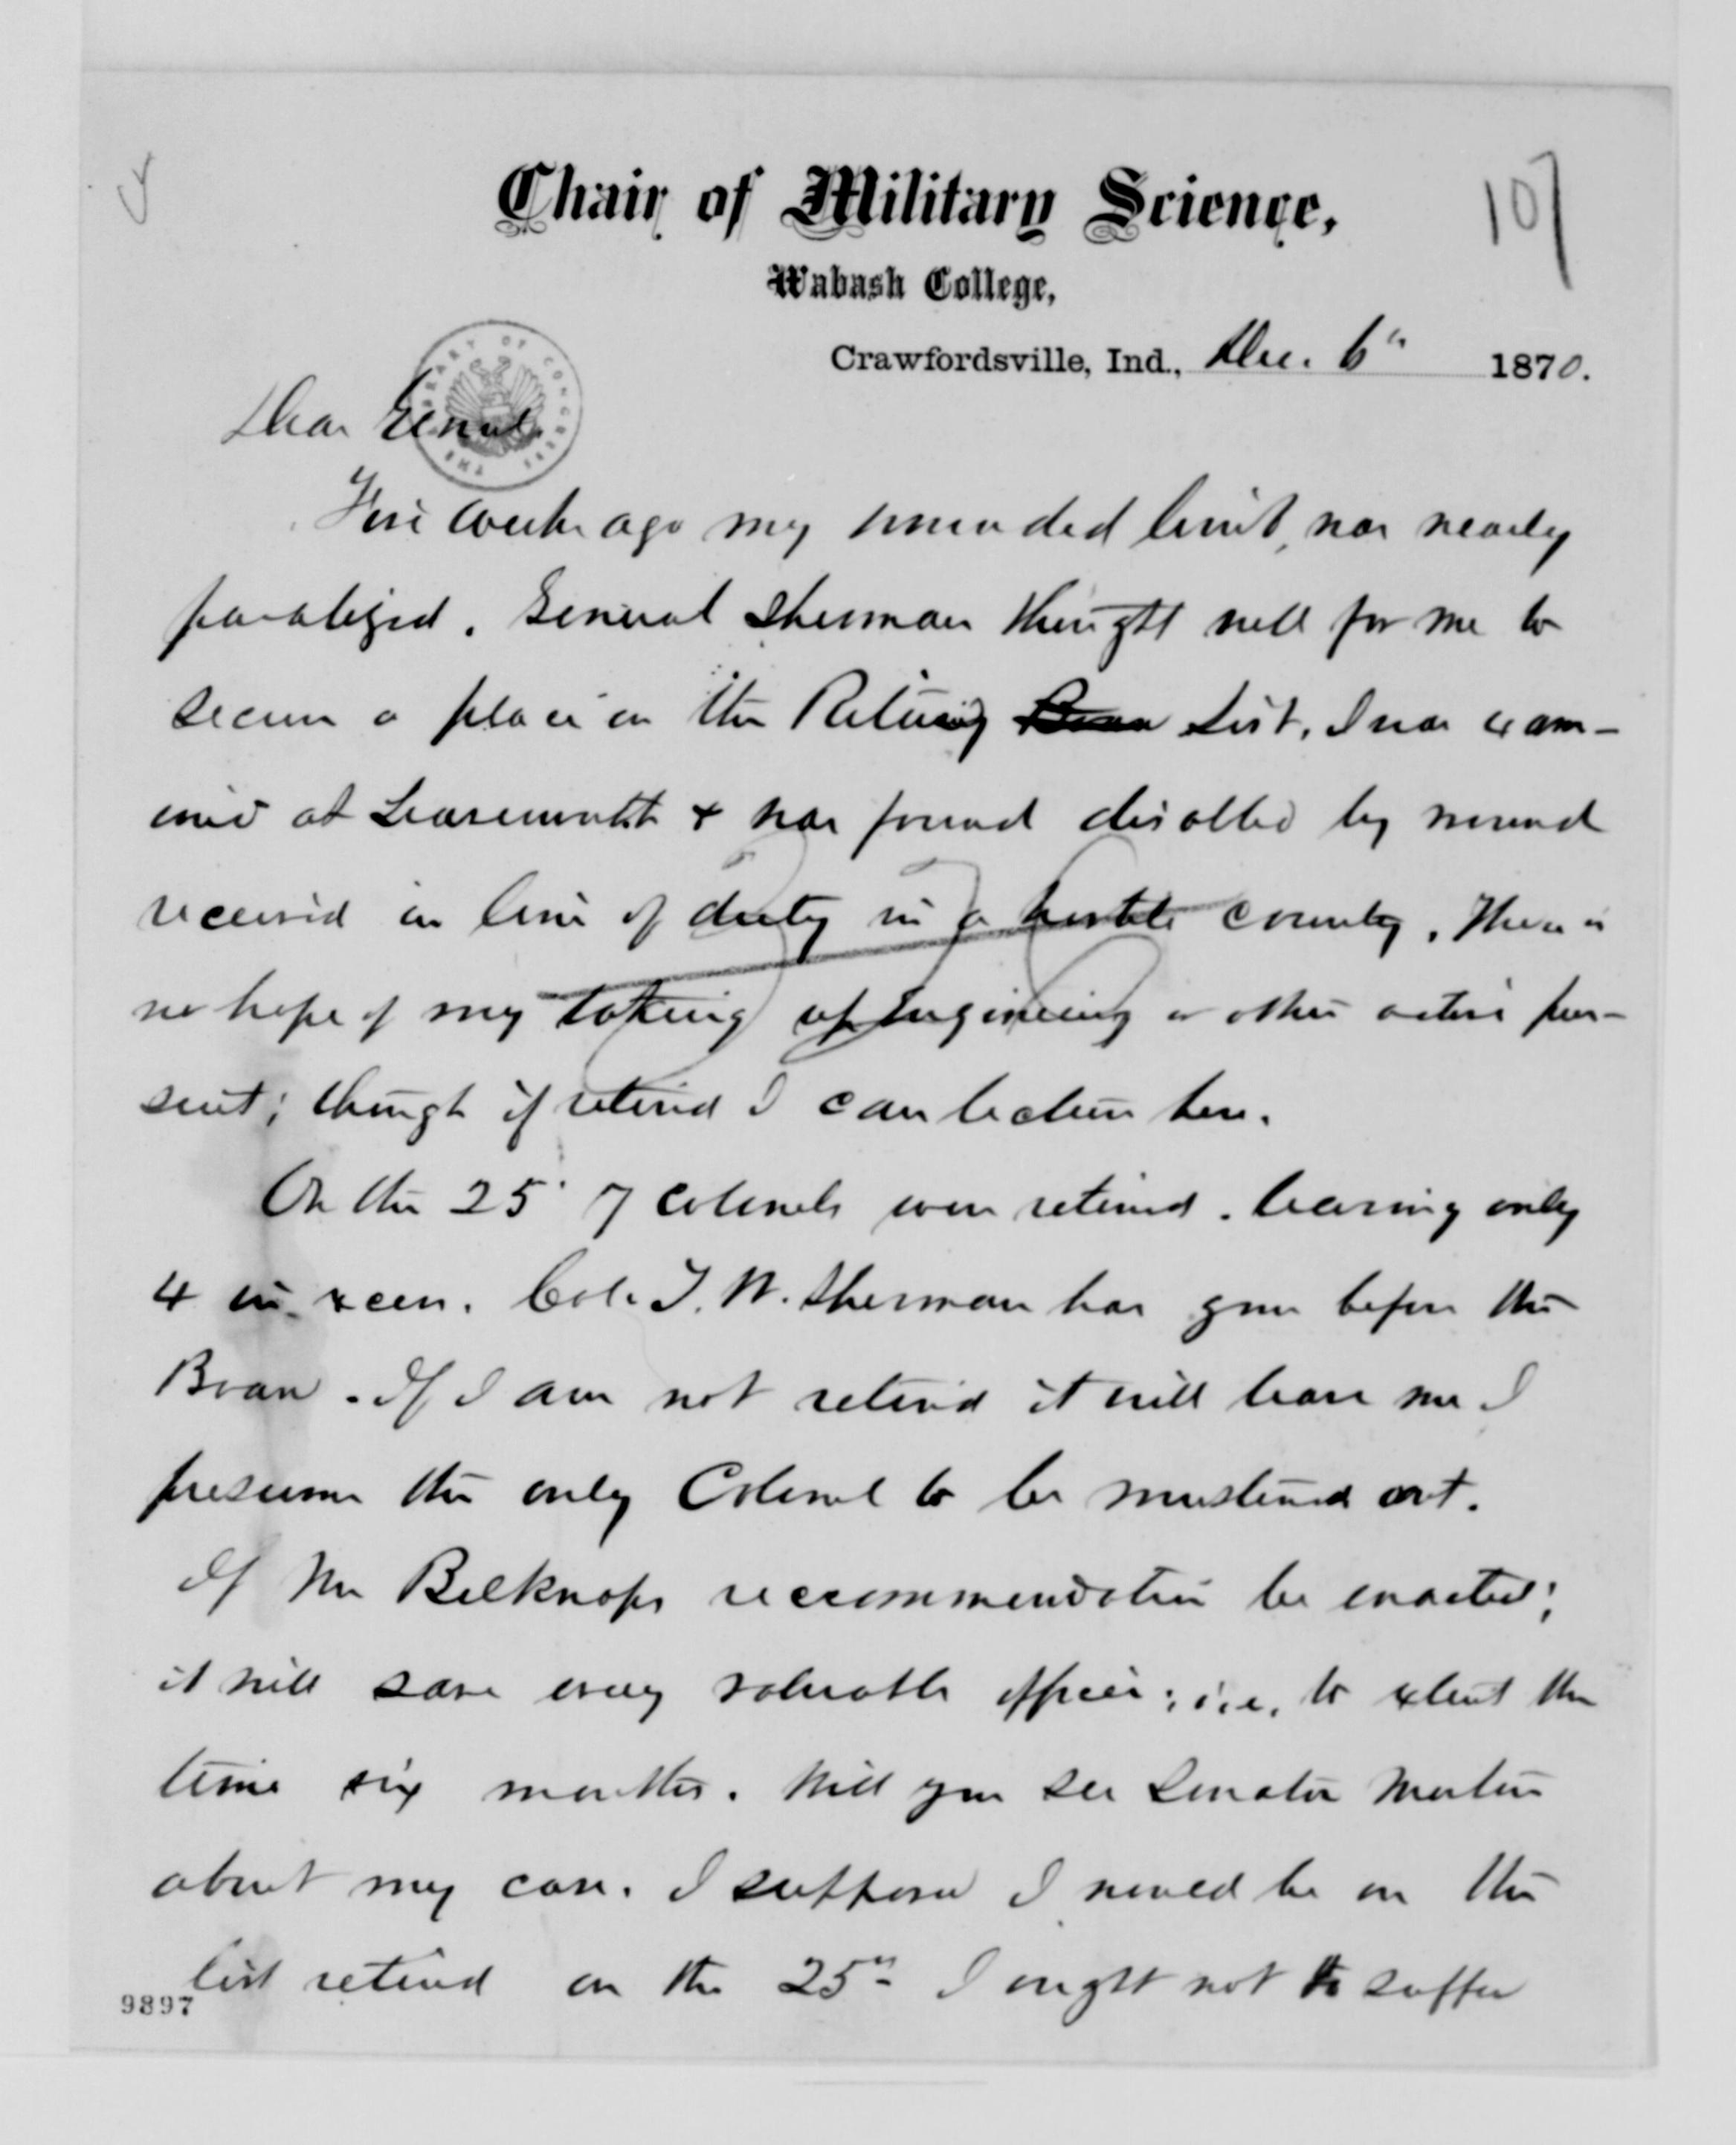 107
Chair of Military Science,
Wabash College,
Crawfordsville, Ind., Dec. 6th 1870.
THE LIBRARY OF CONGRESS
Dear General.
Five weeks ago my wounded limb, was nearly
paralized. General Sherman thought well for me to
secure a place on the Retiring List. I was exam-
ined at Leavenworth & was found disabled by wound
received in line of duty in a hostile country. There is
no hope of my taking up Engineering or other active pur-
suit; though if retired I can lecture here.
On the 25" 7 Colonels were retired. leaving only
4 in xcess. Col. T. W. Sherman has gone before the
Board. If I am not retired it will leave me I
presume the only Colonel to be mustered out.
If Mr Belknaps reccommendation be enacted;
it will save every valuable officer; i.e. to extend the
time six months. Will you see Senator Morton
about my case. I suppose I would be on the
list retired on the 25th I ought not to suffer
9897